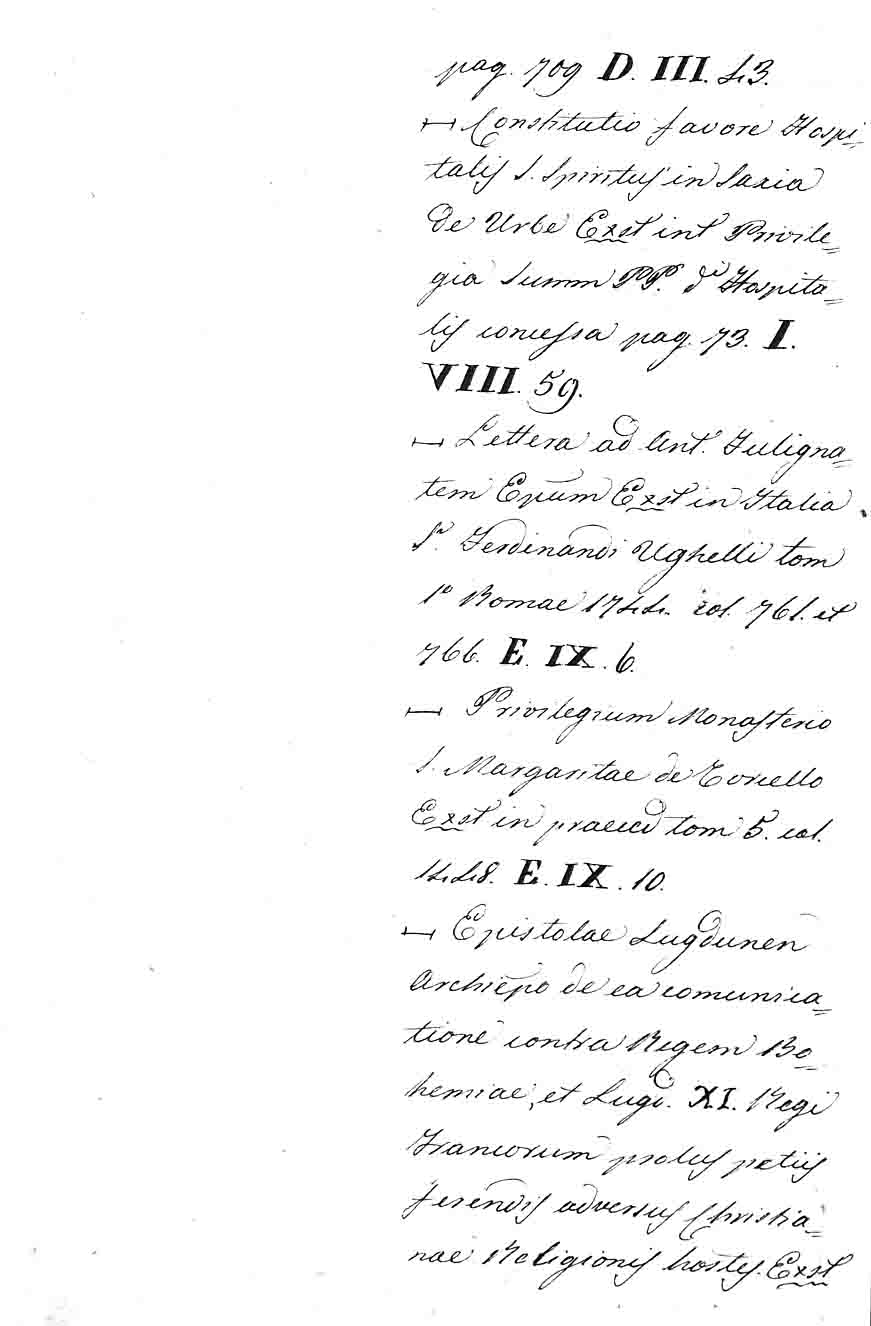 pag. 709 D. III. 43.
— Constitutio favore Hospi=
talis S. Spiritus in Saxia
de Urbe Exst int Privile=
gia Summ PP. dī Hospita=
lis concessa pag. 73. I.
VIII. 59.
— Lettera ad Ant. Fuligna=
tem Epūm Exst in Italia
Sª Ferdinandi Ughelli tom
1º Romae 1744. col. 761. et
766. E. IX. 6.
— Privilegium Monasterio
S. Margaritae de Torcello
Exst in praecd tom 5. col.
1448. E. IX. 10.
— Epistolae Lugdunen̄
Archiēpo de ea comunica=
tione contra Regem Bo=
hemiae, et Lugd. XI. Regi
Francorum prolus petiis
ferendis adversus Christia=
nae Religionis hostes. Exst